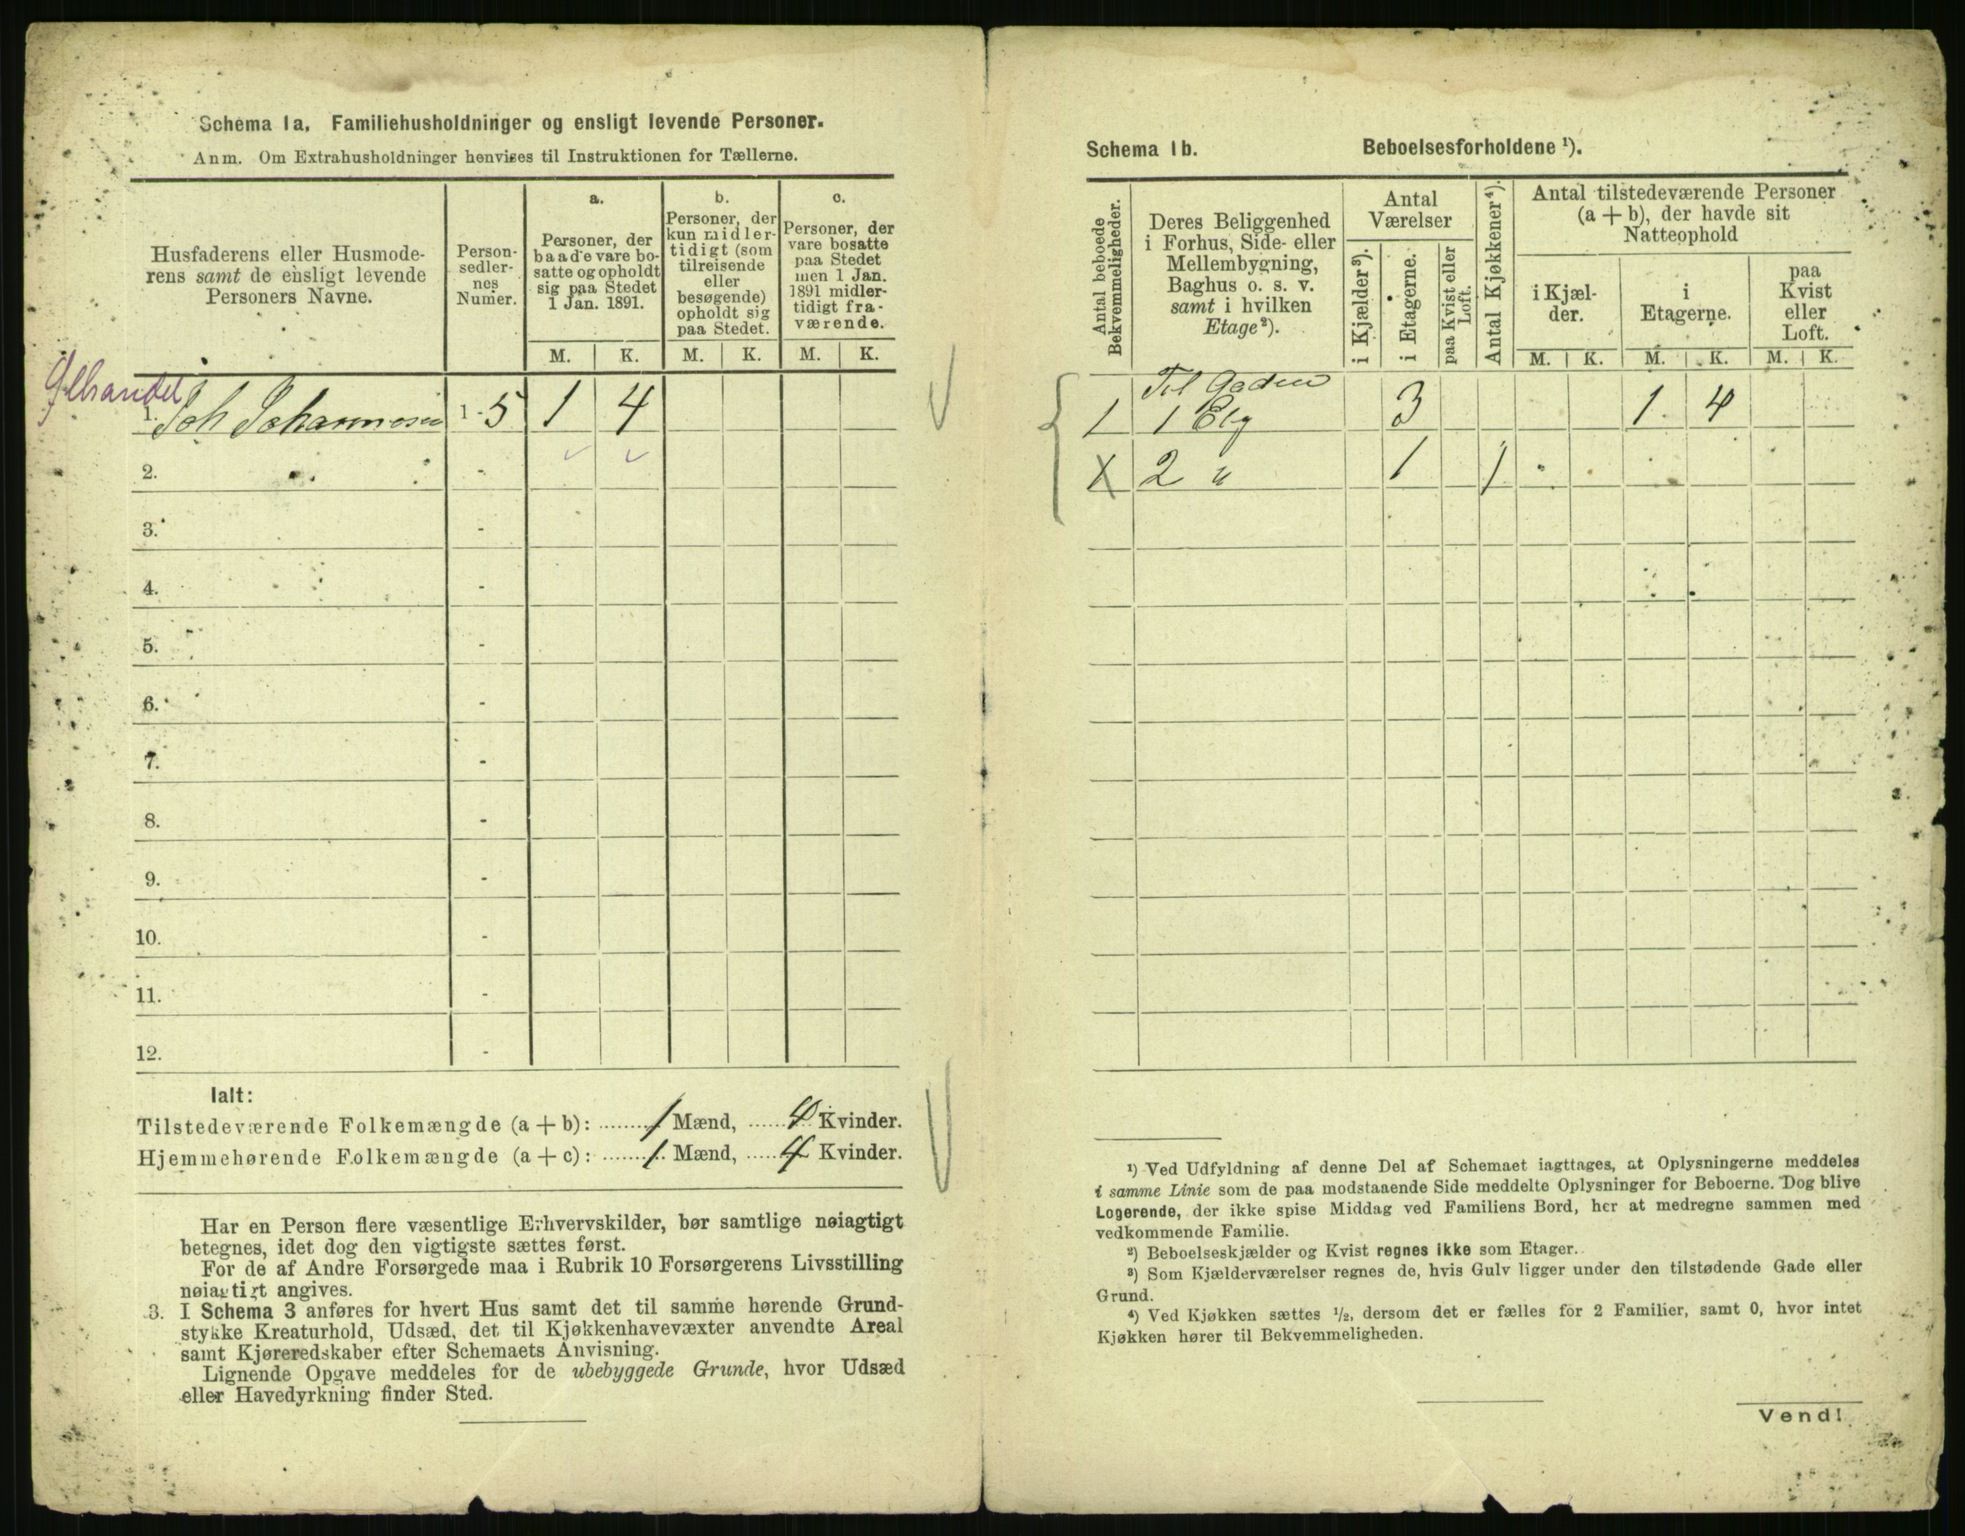 Schema 1a. Familiehusholdninger og ensligt levende Personer.
Anm. Om Extrahusholdninger henvises til Instruktionen for Tællerne.
Husfaderens eller Husmode-
rens samt de ensligt levende
Personers Navne.
Person-
sedler-
nes
Numer.
a.
Personer, der
baade vare bo-
satte og opholdt
sig paa Stedet
1 Jan. 1891.
b.
Personer, der
kun midler-
tidigt (som
tilreisende
eller
besøgende)
opholdt sig
paa Stedet.
c.
Personer, der
vare bosatte
paa Stedet
men 1 Jan.
1891 midler-
tidigt fra-
værende.
M. K. M. K. M. K.
Ølhandel
1. Joh Johannesen 1 - 5 1 4
2. -
3. -
4. -
5. -
6. -
7. -
8. -
9. -
10. -
11. -
12. -
Ialt:
Tilstedeværende Folkemængde (a + b): 1 Mænd, 4 Kvinder.
Hjemmehørende Folkemængde (a + c): 1 Mænd, 4 Kvinder.
Har en Person flere væsentlige Erhvervskilder, bør samtlige nøiagtigt
betegnes, idet dog den vigtigste sættes først.
For de af Andre Forsørgede maa i Rubrik 10 Forsørgerens Livsstilling
nøiagtigt angives.
3. I Schema 3 anføres for hvert Hus samt det til samme hørende Grund-
stykke Kreaturhold, Udsæd, det til Kjøkkenhavevæxter anvendte Areal
samt Kjøreredskaber efter Schemaets Anvisning.
Lignende Opgave meddeles for de ubebyggede Grunde, hvor Udsæd
eller Havedyrkning finder Sted.
Schema 1b. Beboelsesforholdene ¹).
Antal beboede
Bekvemmeligheder.
Deres Beliggenhed
i Forhus, Side- eller
Mellembygning,
Baghus o. s. v.
samt i hvilken
Etage²).
Antal
Værelser
i Kjælder³).
i Etagerne.
paa Kvist eller
Loft.
Antal Kjøkkener⁴).
Antal tilstedeværende Personer
(a + b), der havde sit
Natteophold
i Kjæl-
der.
i
Etagerne.
paa
Kvist
eller
Loft.
M. K. M. K. M. K.
Til Gaden
1 1 Etg 3 1 4
X 2 " 1 1
¹) Ved Udfyldning af denne Del af Schemaet iagttages, at Oplysningerne meddeles
i samme Linie som de paa modstaaende Side meddelte Oplysninger for Beboerne. Dog blive
Logerende, der ikke spise Middag ved Familiens Bord, her at medregne sammen med
vedkommende Familie.
²) Beboelseskjælder og Kvist regnes ikke som Etager.
³) Som Kjælderværelser regnes de, hvis Gulv ligger under den tilstødende Gade eller
Grund.
⁴) Ved Kjøkken sættes ½, dersom det er fælles for 2 Familier, samt 0, hvor intet
Kjøkken hører til Bekvemmeligheden.
Vend!